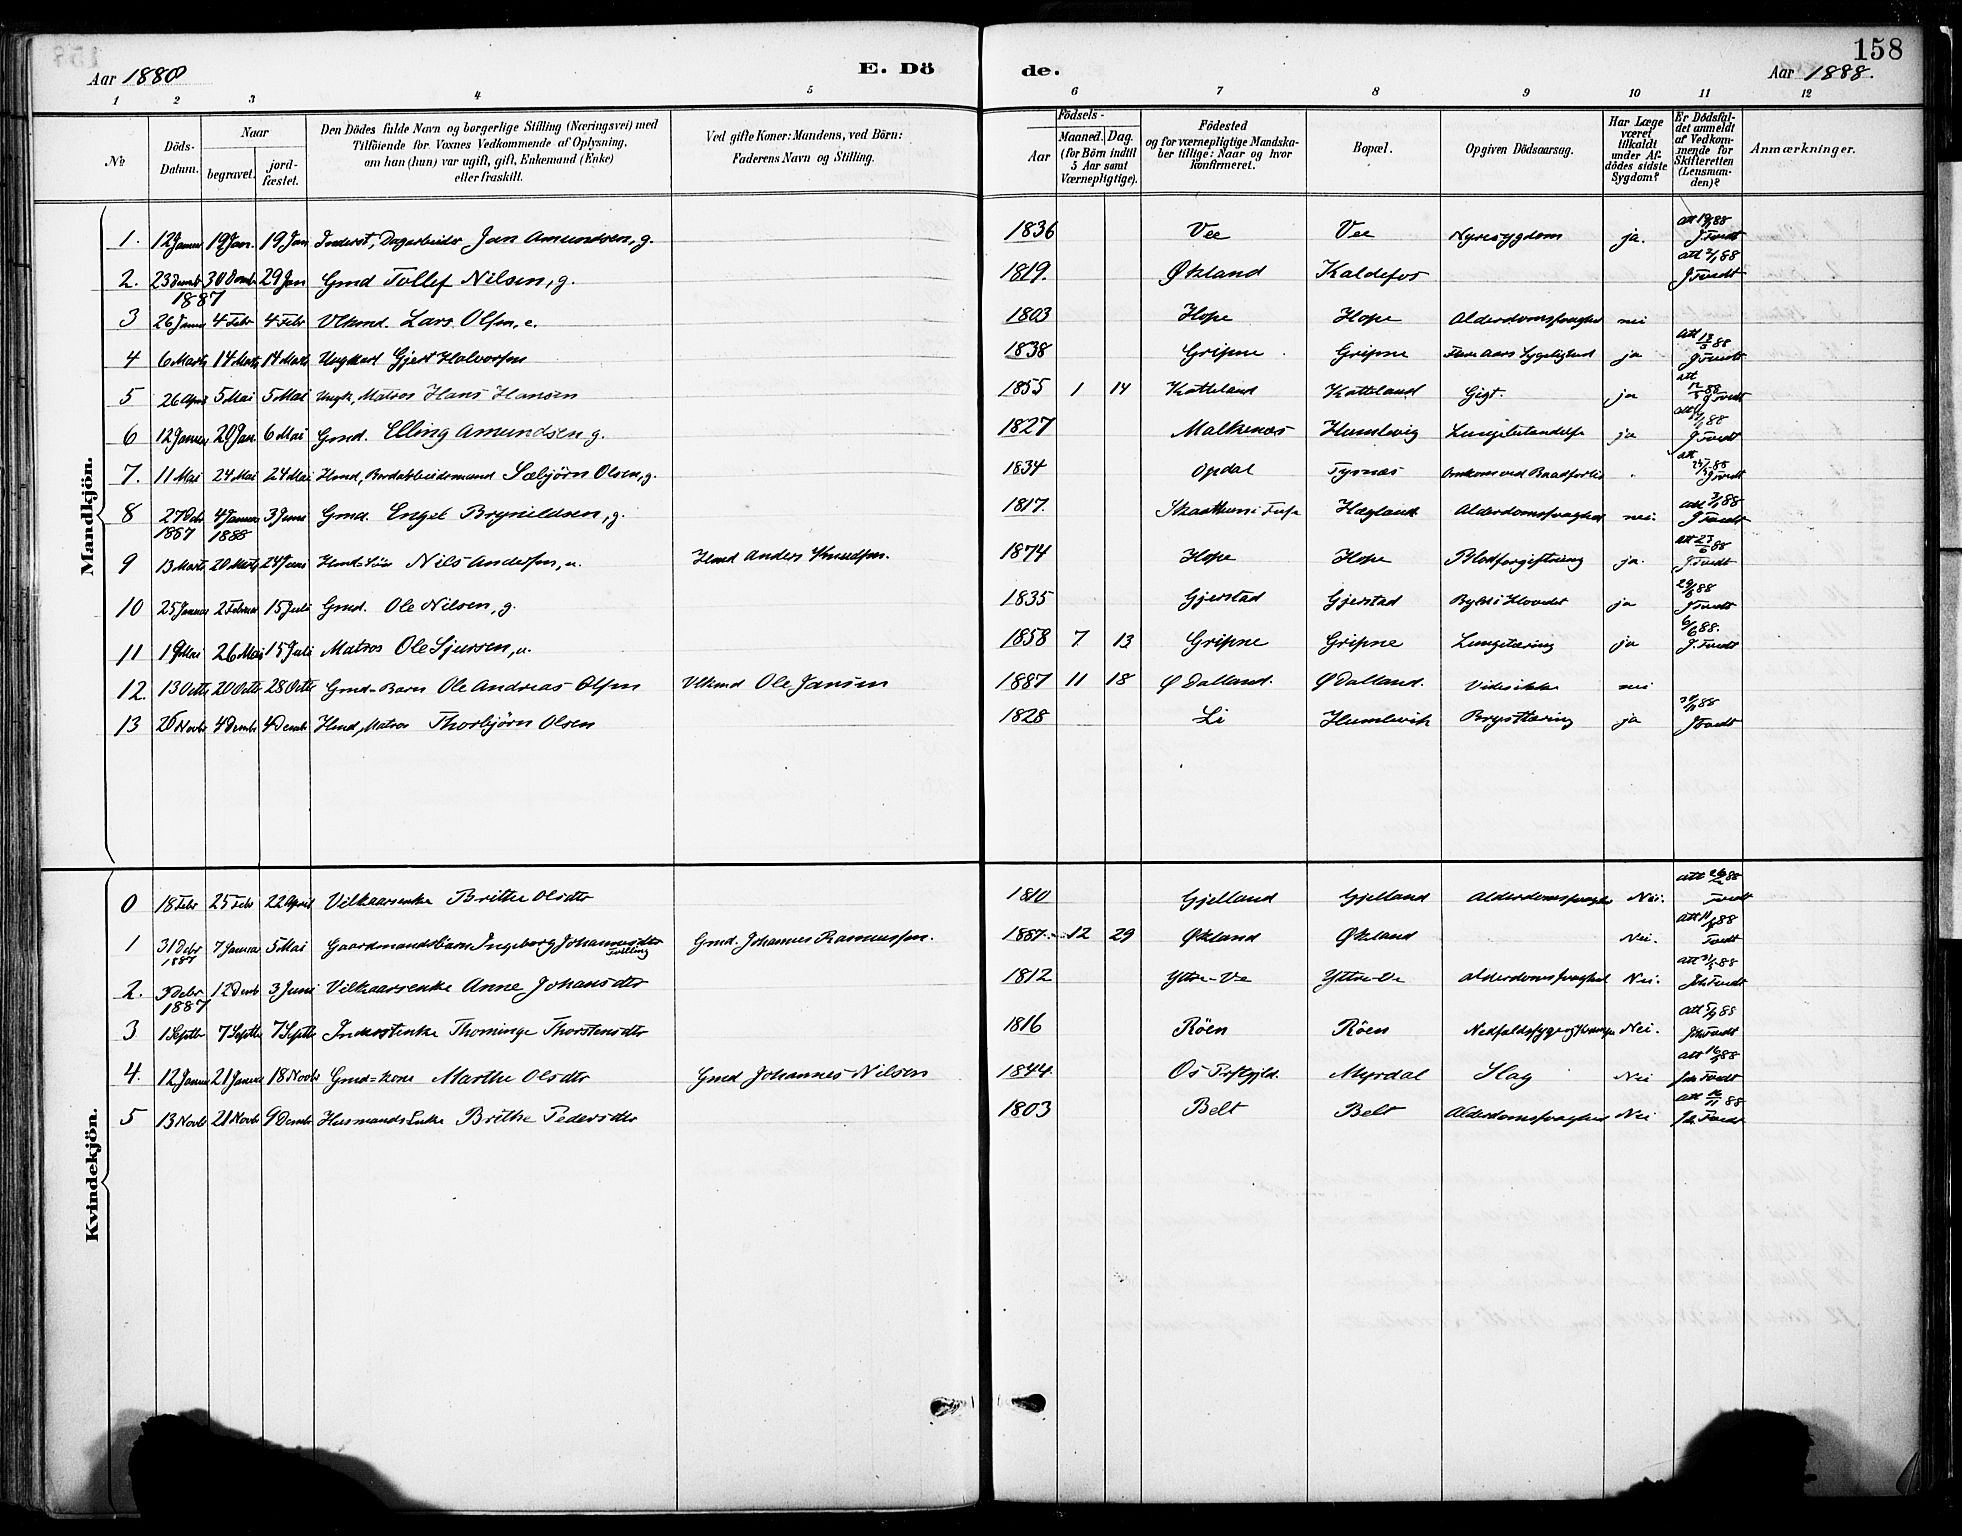 158
Aar 1888
E. Dö
de.
Aar 1888.
1 2 3 4 5 6 7 8 9 10 11 12
№
Döds-Datum.
Naar
begravet.
jord-fæstet.
Den Dödes fulde Navn og borgerlige Stilling (Næringsvei) med
Tilföiende for Voxnes Vedkommende af Oplysning,
om han (hun) var ugift, gift, Enkemand (Enke)
eller fraskilt.
Ved gifte Koner: Mandens, ved Börn:
Faderens Navn og Stilling.
Födsels-
Aar
Maaned. Dag.
(for Börn indtil
5 Aar samt
Værnepligtige).
Födested
og for værnepligtige Mandska-
ber tillige: Naar og hvor
konfirmeret.
Bopæl.
Opgiven Dödsaarsag.
Har Læge
været
tilkaldt
under Af-
dödes sidste
Sygdom?
Er Dödsfal-
det anmeldt
af Vedkom-
mende for
Skifteretten
(Lensman-
den)?
Anmærkninger.
Mandkjön.
1. 12 Januar 19 Jan. 19 Jan Inderst, Dagarbeider Jan Amundsen, g. 1836 Vee Vee Nyresygdom ja.
2. 23 Decmb 1887 30 Decmb 29 Jan Gmd Tollef Nilsen, g. 1819. Økland Kaldefos
3 26 Janr 4 Febr 4 Febr Vlkmd. Lars Olsen, e. 1803 Hope Hope Alderdomssvaghed nei
4 6 Marts 14 Marts 14 Marts Ungkarl Gjert Halvorsen 1838 Gripne Gripne Flere Aars Sygelighed ja
5 26 April 5 Mai 5 Mai Ungk, Matros Hans Hansen 1855 1 14 Katteland Katteland Gigt. ja
6 12 Januar 20 Jan 6 Mai Gmd. Elling Amundsen g. 1827 Malkenæs Humlevig Lungebetændelse ja
7. 11 Mai 24 Mai 24 Mai Hmd, Sæbjörn Olsen, g. 1834 Opdal Tysnæs Omkom ved Baadforlis
8 27 Decbr 1887 4 Januar 1888 3 Juni Gmd. Engel Brynildsen, g. 1817. Hægland Alderdomssvaghed nei.
9 13 Marts 20 Marts 24 Juni Hmds Sön Nils Andersen, u. Hmd Anders Knudsen. 1874 Hope Hope Blodforgiftning ja.
10 25 Januar 2 Februar 15 Juli Gmd. Ole Nilsen, g. 1835 Gjerstad Gjerstad Byld i Hovedet ja
11 19 Mai 26 Mai 15 Juli Matros Ole Sjursen, u. 1858 7 13 Gripne Gripne Lungetæring ja
12. 13 Octb 20 Octb 28 Octb Gmd-Barn Ole Andreas Olsen Vlkmd Ole Jansen 1887 11 18 Ø Dalland. Ø Dalland. Vides ikke nei
13 26 Novbr 4 Decmbr 4 Decmbr Hmd, Matros Thorbjörn Olsen 1828 Li Humlevik Brysttæring ja
Kvindekjön.
0 18 Febr 25 Febr 22 April Vilkaarsenke Brithe Olsdtr 1810 Gjelland Gjelland Alderdomssvaghed Nei.
1 31 Decbr 1887 7 Januar 5 Mai Gaardmandsbarn Ingeborg Johannesdtr Tvilling Gmd. Johannes Rasmussen. 1887. 12 29 Økland Økland Nei.
2. 3 Decbr 1887 12 Decmb 3 Juni Vilkaarsenke Anne Johansdtr 1812 Yttre-Ve Yttre-Ve Alderdomssvaghed Nei.
3 1 Septbr 7 Septbr 7 Septbr Inderstenke Thorninge Thorstensdtr 1816 Röen Röen Nei.
4. 12 Januar 21 Januar 18 Novbr Gmd-kone Marthe Olsdtr Gmd Johannes Nilsen 1844. Os Prstgjld. Myrdal Slag Nei
5 13 Novbr 21 Novbr 9 Decmbr Husmands Enke Brithe Pedersdtr 1803 Belt Belt Alderdomssvaghed Nei